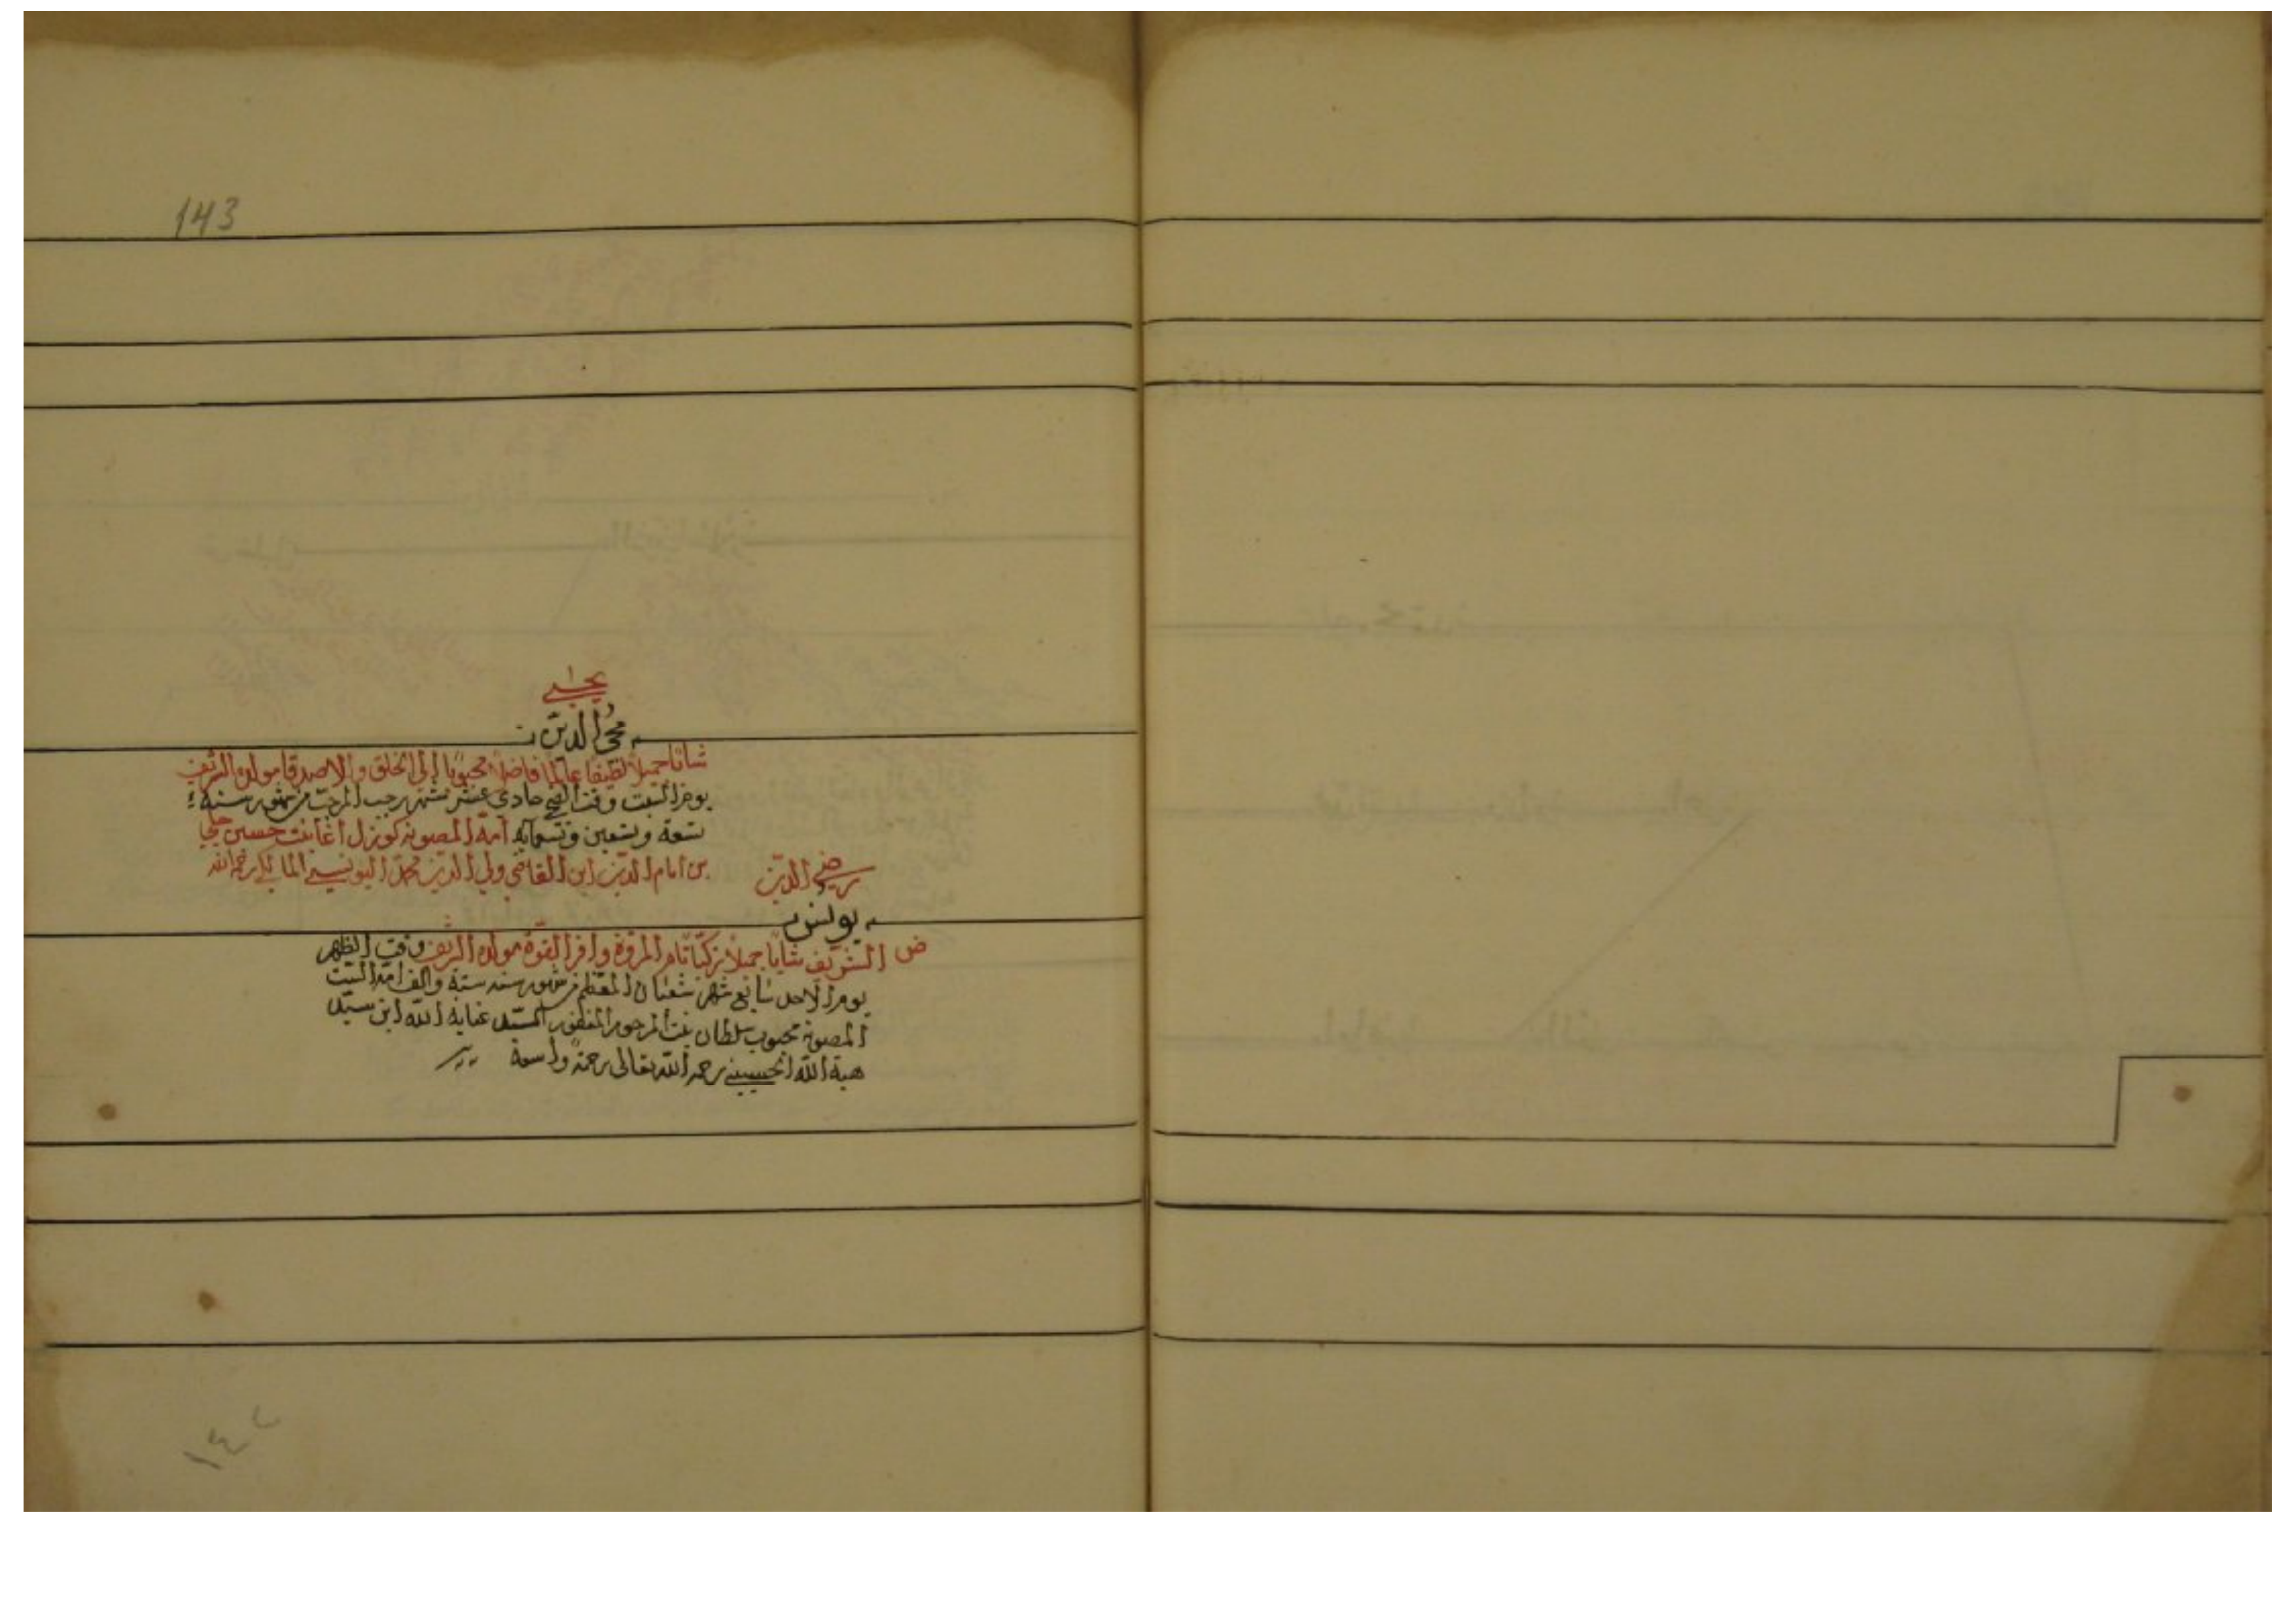 143
يحيى
محي الدين
شابا جميلا لطيفا عالما فاضلا محبوبا إلى الخلق والاصدقا مولده الشريف
يوم السبت وقت الضحى حادى عشر شهر رجب المرجب من شهور سنة
تسعة وتسعين وتسعمايه امه المصونه كوزل اغا بنت حسين
بن امام الدين ابن القاضي ولي الدين محمد اليونيسي المالكي رحمه الله
رضي الدين
يونس
الشريف شابا جميلا زكيا تام المروة وافر القوة مولده الشريف وقت الظهر
يوم الاحد سابع شهر شعبان المعظم من شهور سنه ستة والف امه الست
المصونه محبوب سلطان بنت المرحوم المغفور السيد عناية الله ابن سيد
هبة الله الحسيني رحمه الله تعالى رحمة واسعة